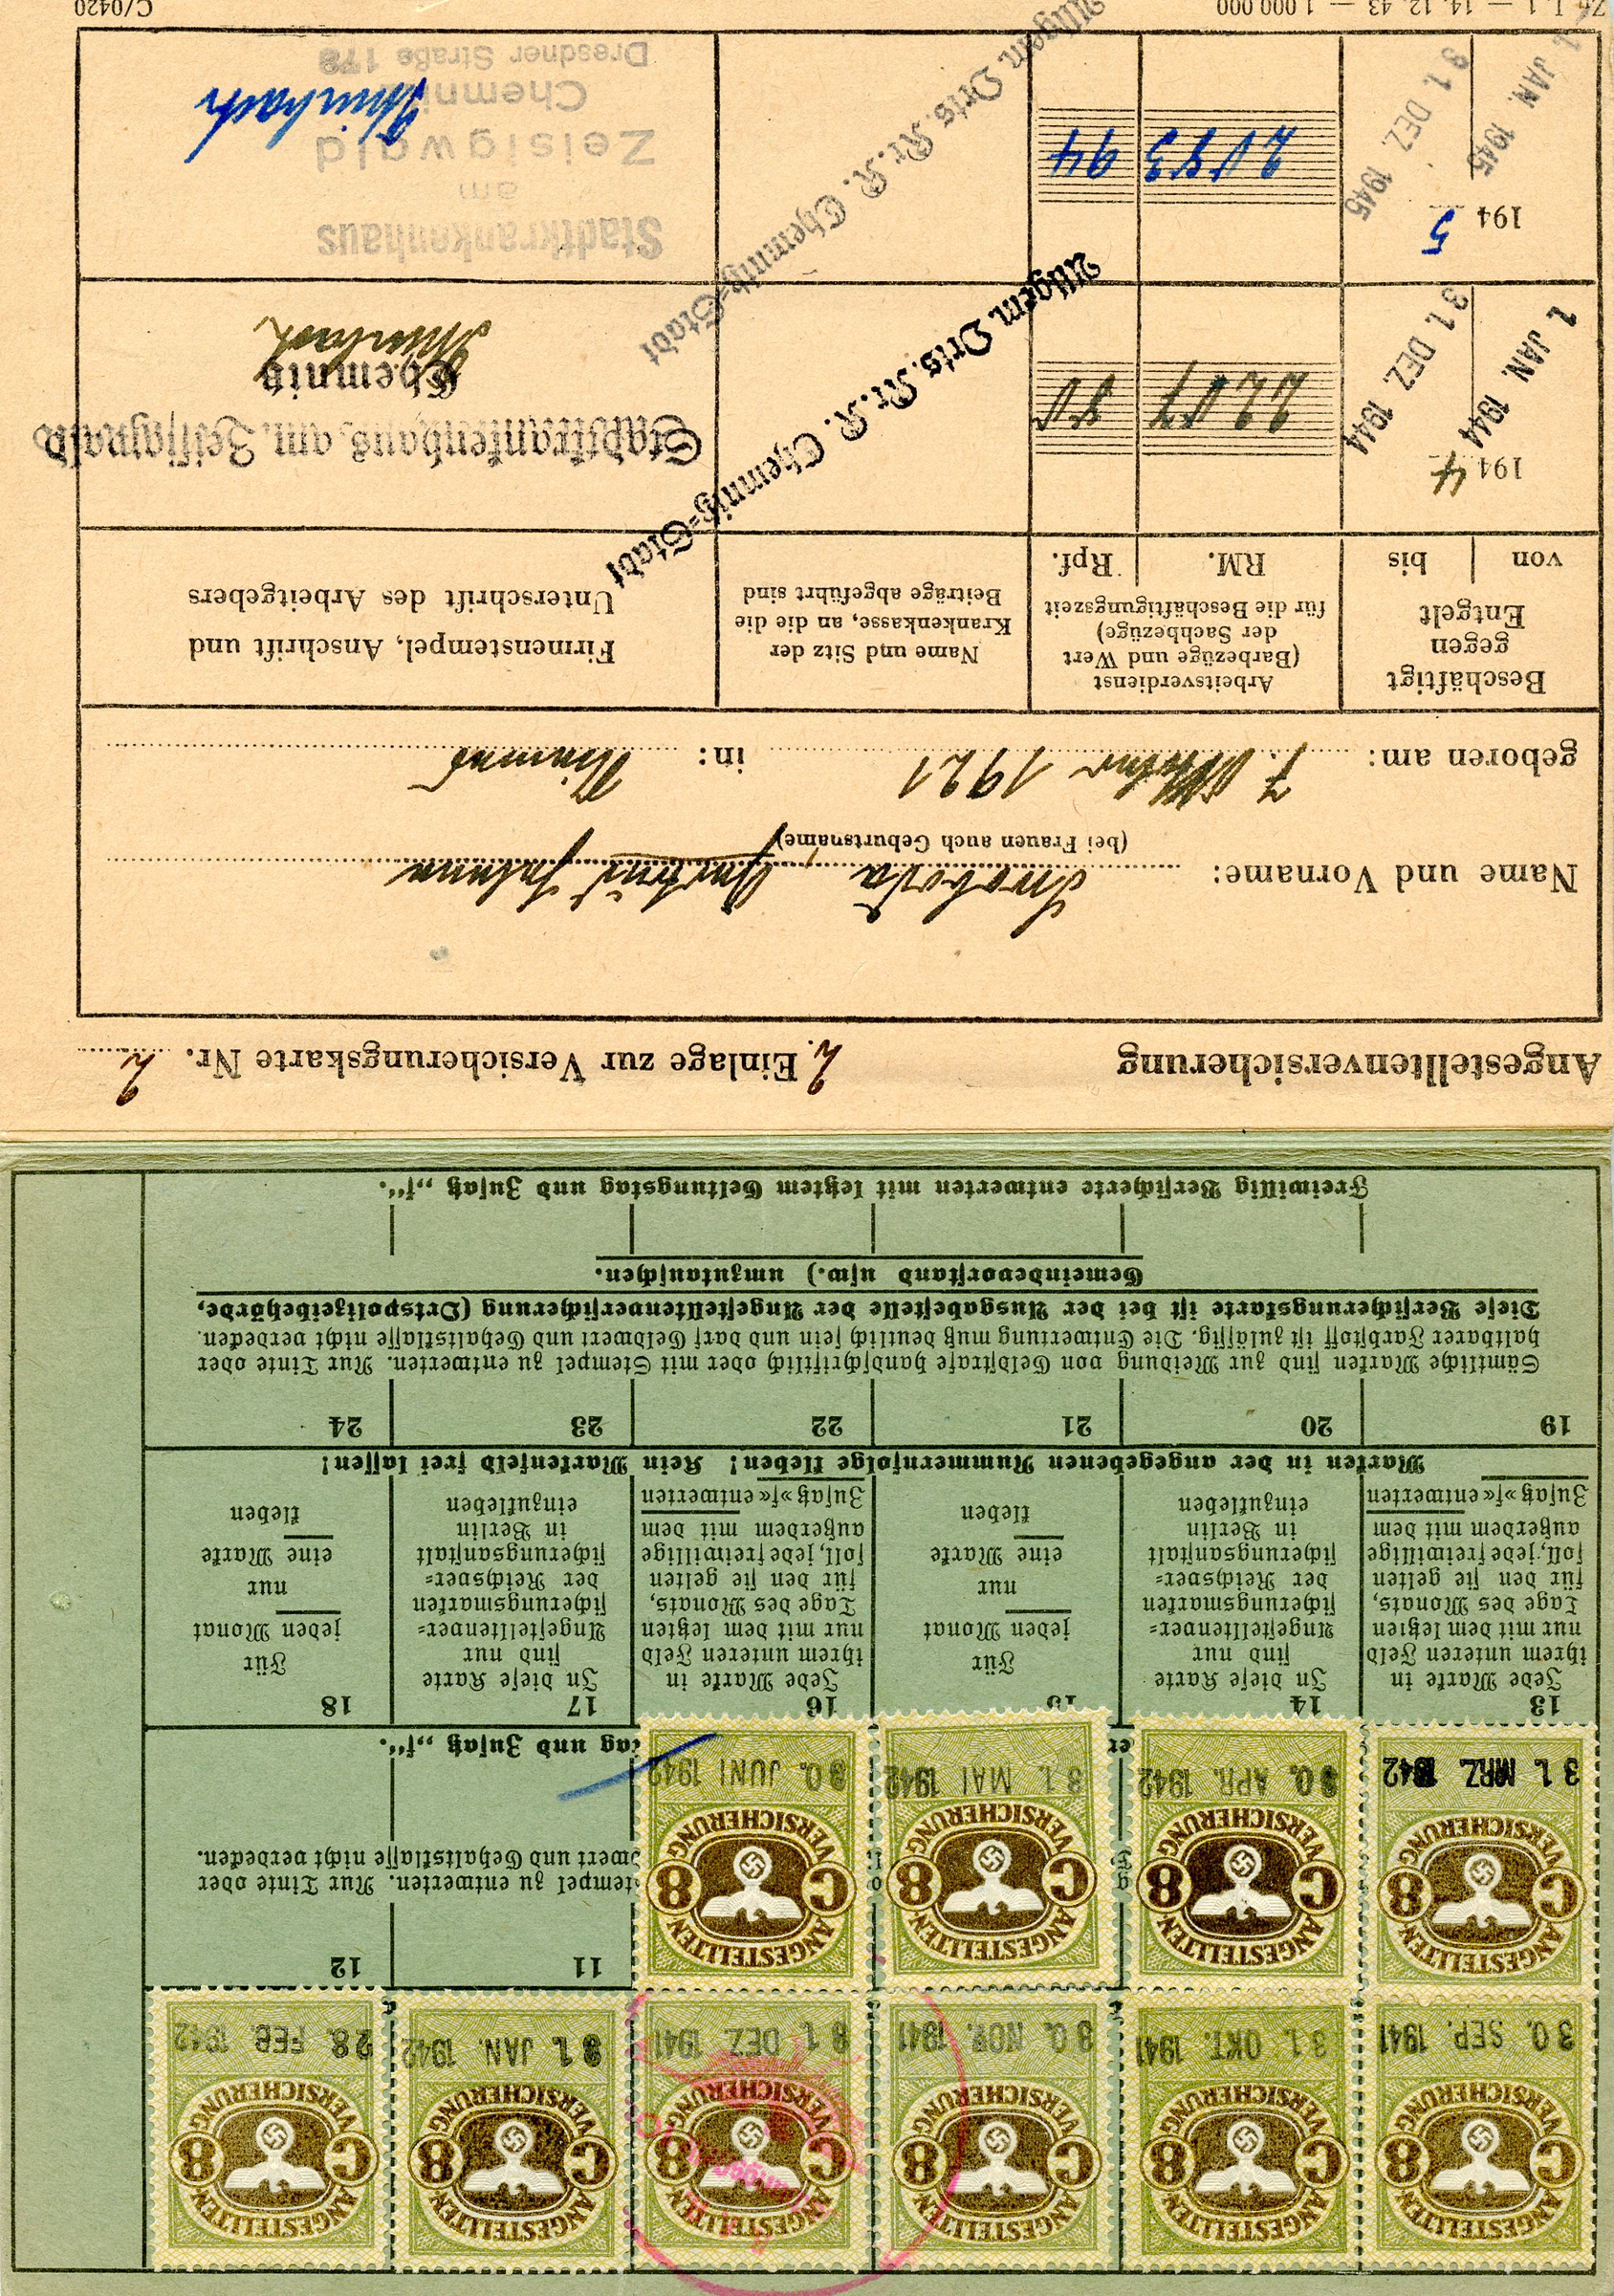 ANGESTELLTEN VERSICHERUNG C 8 30. SEP. 1941
ANGESTELLTEN VERSICHERUNG C 8 31. OKT. 1941
ANGESTELLTEN VERSICHERUNG C 8 30. NOV. 1941
ANGESTELLTEN VERSICHERUNG C 8 31. DEZ. 1941
ANGESTELLTEN VERSICHERUNG C 8 31. JAN. 1942
ANGESTELLTEN VERSICHERUNG C 8 28. FEB. 1942
ANGESTELLTEN VERSICHERUNG C 8 31. MRZ. 1942
ANGESTELLTEN VERSICHERUNG C 8 30. APR. 1942
ANGESTELLTEN VERSICHERUNG C 8 31. MAI 1942
ANGESTELLTEN VERSICHERUNG C 8 30. JUNI 1942
11 12
stempel zu entwerten. Nur Tinte oder
dwert und Gehaltsklasse nicht verdecken.
tag und Zusatz „f“.
13 14 15 16 17 18
Jede Marke in
ihrem unteren Feld
nur mit dem letzten
Tage des Monats,
für den sie gelten
soll, jede freiwillige
außerdem mit dem
Zusatz »f« entwerten
In diese Karte
sind nur
Angestelltenver-
sicherungsmarken
der Reichsver-
sicherungsanstalt
in Berlin
einzukleben
Für
jeden Monat
nur
eine Marke
kleben
Jede Marke in
ihrem unteren Feld
nur mit dem letzten
Tage des Monats,
für den sie gelten
soll, jede freiwillige
außerdem mit dem
Zusatz »f« entwerten
In diese Karte
sind nur
Angestelltenver-
sicherungsmarken
der Reichsver-
sicherungsanstalt
in Berlin
einzukleben
Für
jeden Monat
nur
eine Marke
kleben
Marken in der angegebenen Nummernfolge kleben! Kein Markenfeld frei lassen!
19 20 21 22 23 24
Sämtliche Marken sind zur Meidung von Geldstrafe handschriftlich oder mit Stempel zu entwerten. Nur Tinte oder
haltbarer Farbstoff ist zulässig. Die Entwertung muß deutlich sein und darf Geldwert und Gehaltsklasse nicht verdecken.
Diese Versicherungskarte ist bei der Ausgabestelle der Angestelltenversicherung (Ortspolizeibehörde,
Gemeindevorstand usw.) umzutauschen.
Freiwillig Versicherte entwerten mit letztem Geltungstag und Zusatz „f“.
Angestelltenversicherung 2. Einlage zur Versicherungskarte Nr. 2
Name und Vorname: Swoboda, Gertrud Johanna
(bei Frauen auch Geburtsname)
geboren am: 7. Oktober 1921 in: Niemes
Beschäftigt
gegen
Entgelt
von bis
Arbeitsverdienst
(Barbezüge und Wert
der Sachbezüge)
für die Beschäftigungszeit
RM. Rpf.
Name und Sitz der
Krankenkasse, an die die
Beiträge abgeführt sind
Firmenstempel, Anschrift und
Unterschrift des Arbeitgebers
1944
1. JAN. 1944 31. DEZ. 1944
2207 80
Allgem. Orts.Kr.K. Chemnitz-Stadt
Stadtkrankenhaus am Zeisigwald
Chemnitz
1945
1. JAN. 1945 31. DEZ. 1945
2083 94
Allgem. Orts.Kr.K. Chemnitz-Stadt
Stadtkrankenhaus
am
Zeisigwald
Chemnitz
Dresdner Straße 178
Zu I. 1 — 14. 12. 43 — 1 000 000 C/0420